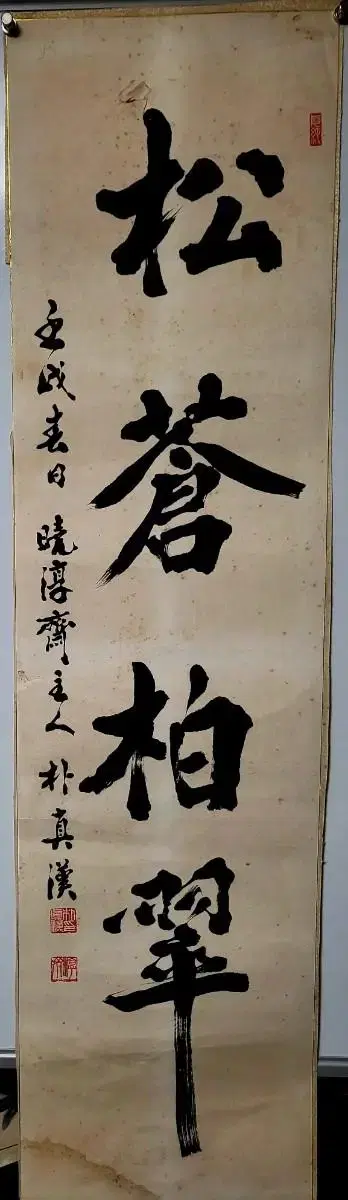 松蒼柏翠
壬戌春日 曉淳齋主人 朴真漢